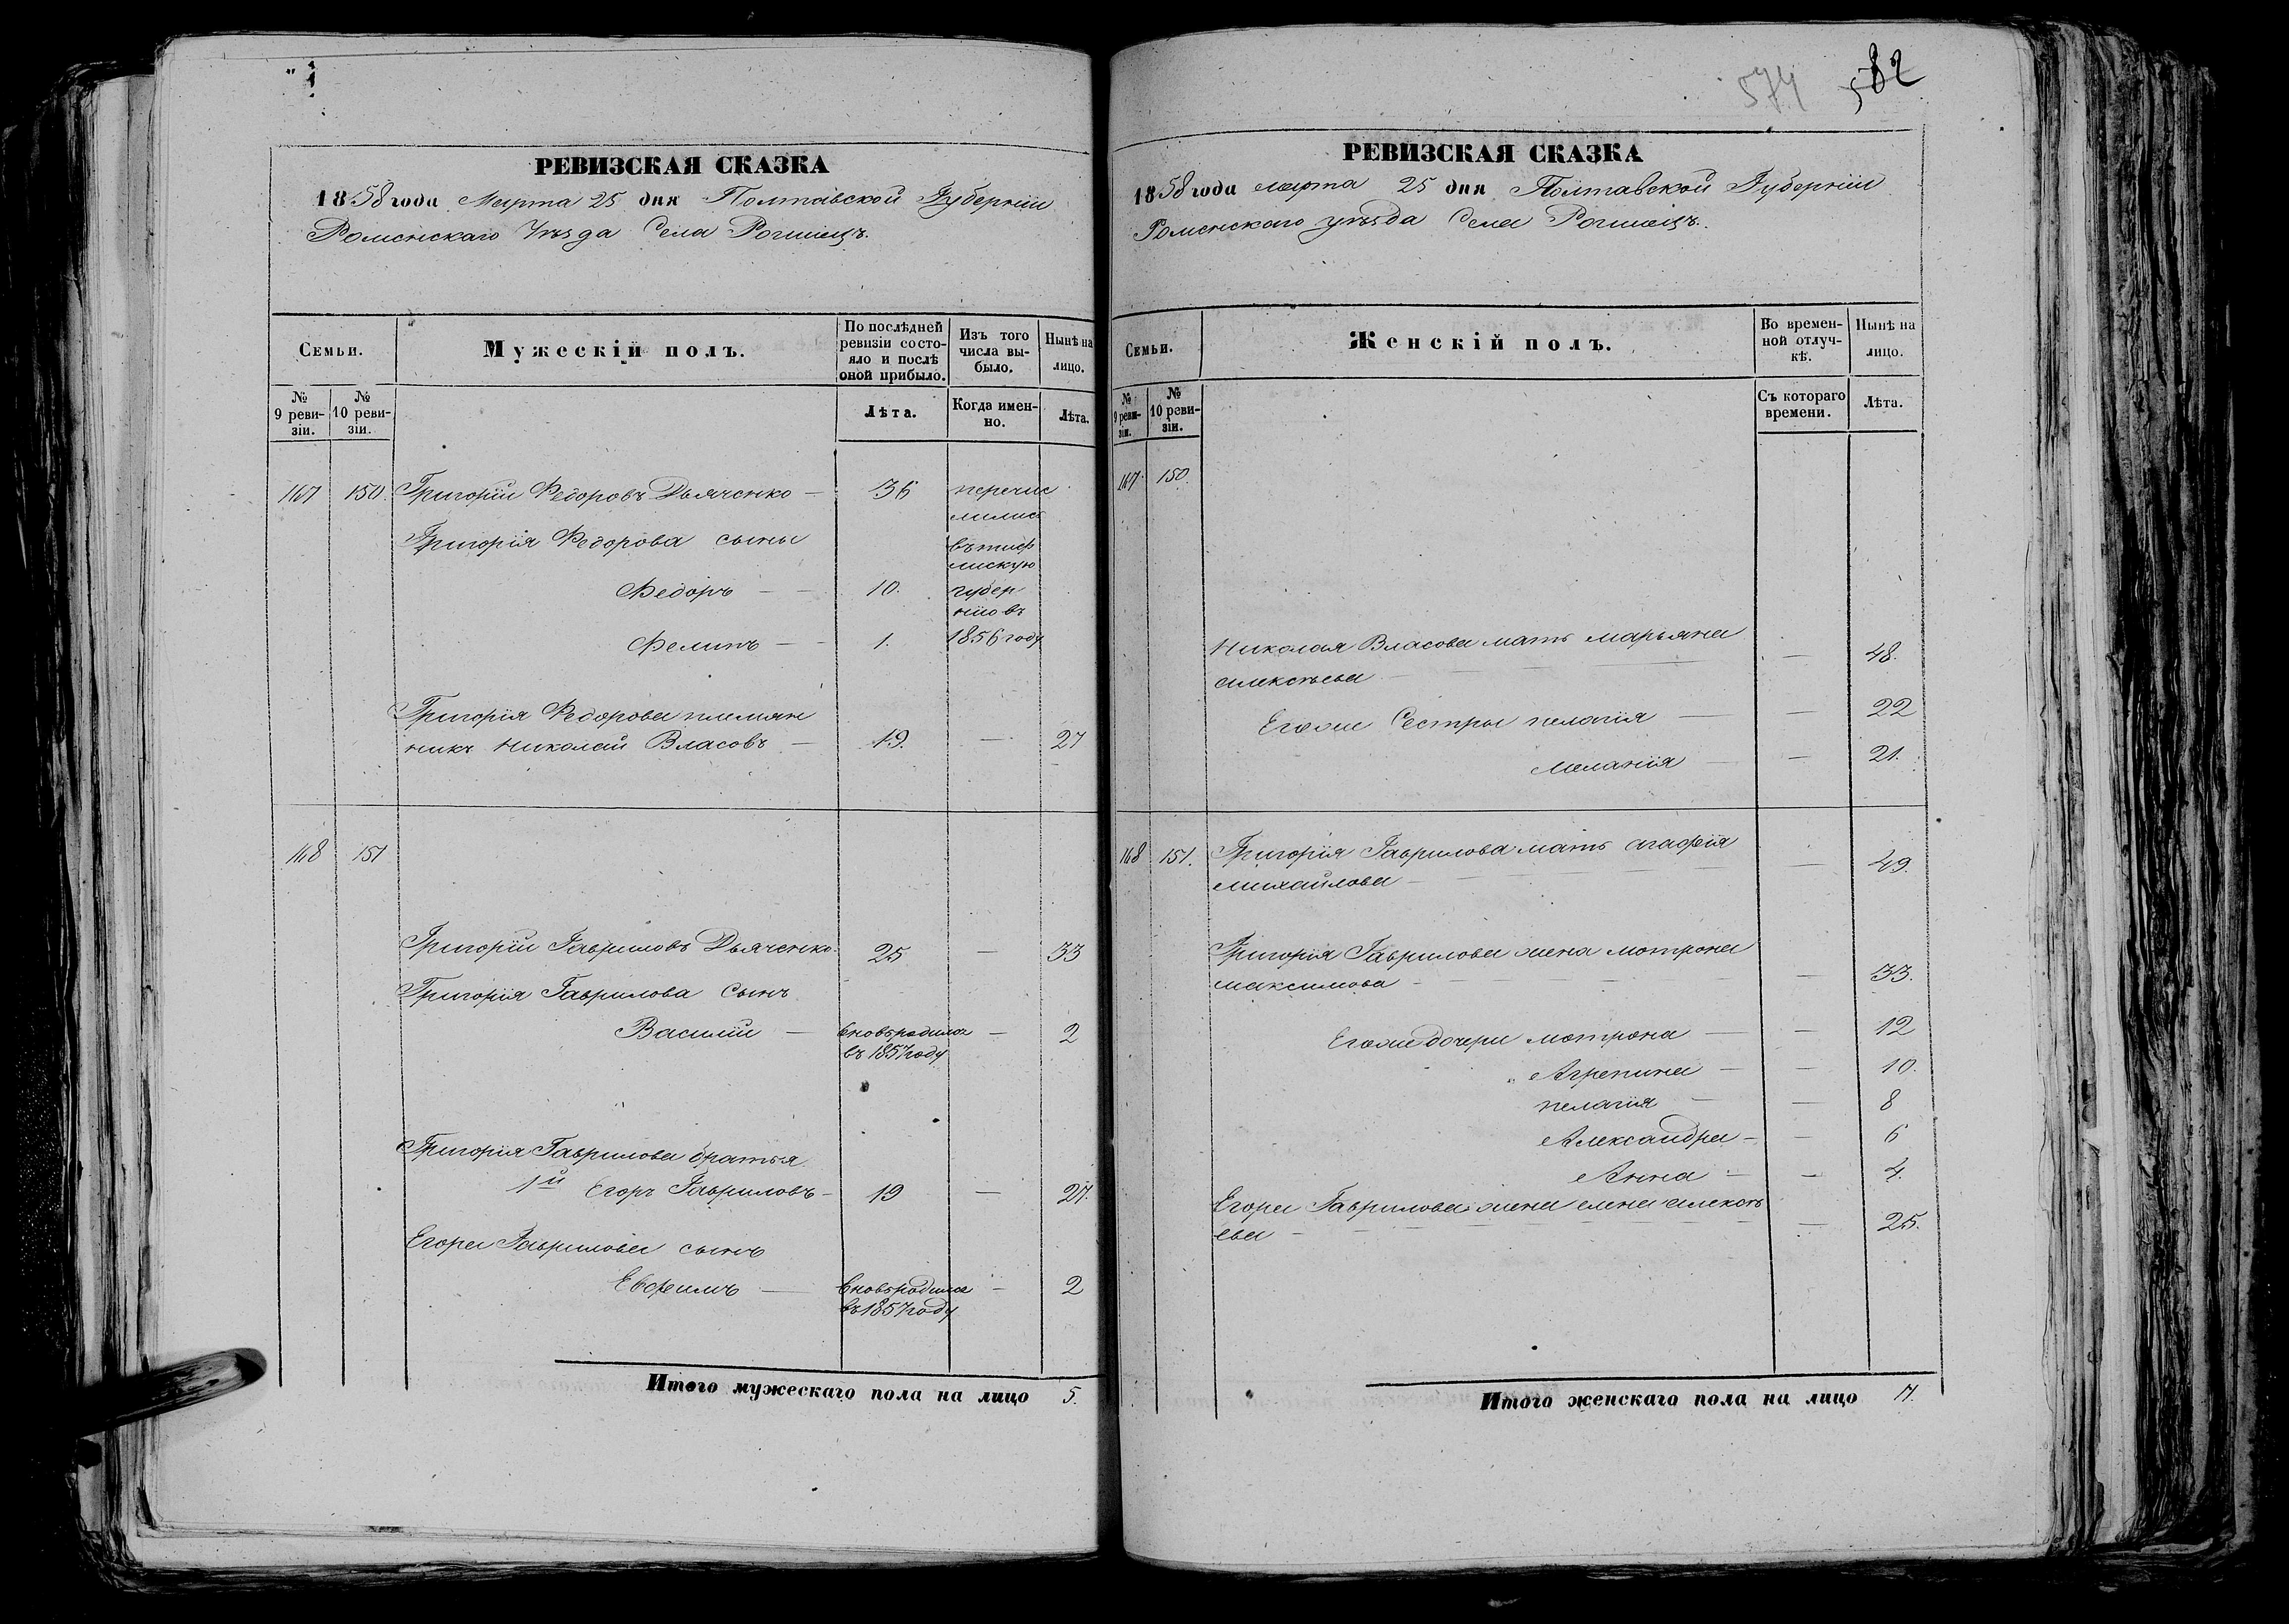 РЕВИЗСКАЯ СКАЗКА
1858 года Марта 25 дня Полтавской Губерніи
Роменскаго Уѣзда Села Рогинецъ.
Семьи.
Мужескій полъ.
По послѣдней ревизіи состояло и послѣ оной прибыло.
Изъ того числа выбыло.
Нынѣ на лицо.
№ 9 ревизіи.
№ 10 ревизіи.
Лѣта.
Когда именно.
Лѣта.
147 150 Григорій Федоровъ Дьяченко — 36 перечис
лились
Григорія Федорова сыны въ тиф
лискую
Федоръ — 10. губер
нію въ
Филипъ — 1. 1856 году
Григорія Федорова племян
никъ Николай Власовъ — 19. — 27
148 151
Григорій Гавриловъ Дьяченко 25 — 33
Григорія Гаврилова Сынъ
Василій — вновьродился — 2
въ 1857 году
Григорія Гаврилова братья
1й Егоръ Гавриловъ — 19 — 27.
Егора Гаврилова сынъ
Евфимъ — вновьродился — 2
въ 1857 году
Итого мужескаго пола на лицо 5.
574 582
РЕВИЗСКАЯ СКАЗКА
1858 года марта 25 дня Полтавской Губерніи
Роменскаго уѣзда Села Рогинецъ.
Семьи.
Женскій полъ.
Во временной отлучкѣ.
Нынѣ на лицо.
№ 9 ревизіи.
№ 10 ревизіи.
Съ котораго времени.
Лѣта.
147. 150.
Николая Власова мать марьяна
алексѣева — — 48.
Егоже Сестры пелагія — — 22
Меланія — — 21.
148 151. Григорія Гаврилова мать агафія
михайлова — — 49.
Григорія Гаврилова жена мотрона
максимова — — 33.
Егоже дочери мотрона — — 12
Агрепина — — 10.
пелагія — — 8
Александра — — 6
Анна — — 4.
Егора Гаврилова жена елена алексѣ
ева — — 25.
Итого женскаго пола на лицо 11.